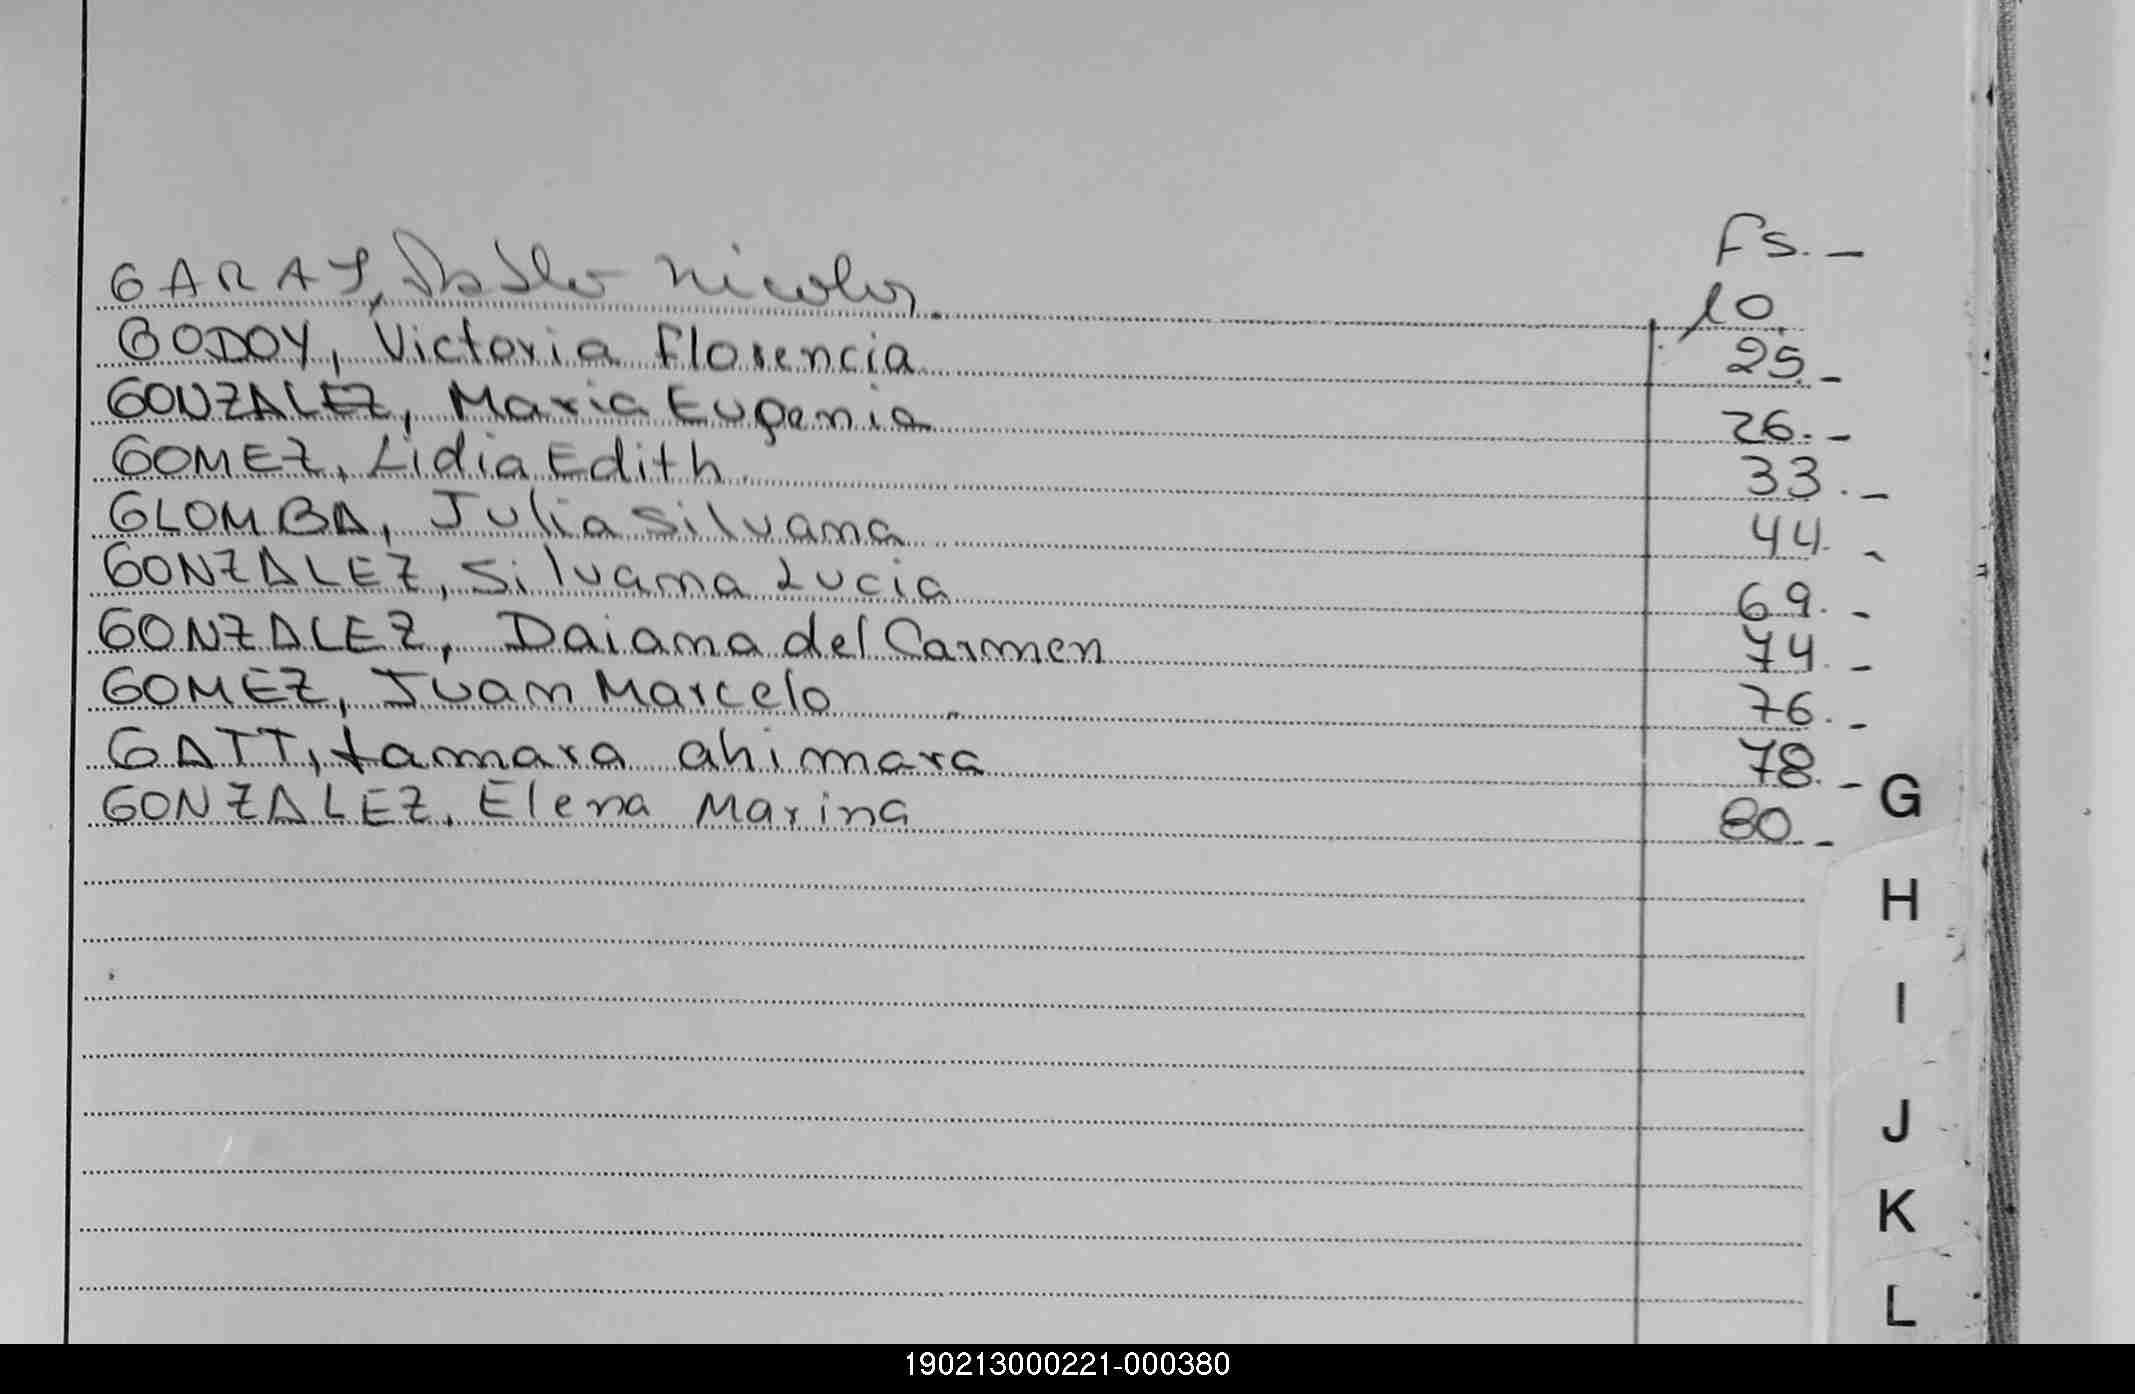 Fs.-
GARAY, Pablo Nicolas. 10.
GODOY, Victoria Florencia 25.-
GONZALEZ, Maria Eugenia 26.-
GOMEZ, Lidia Edith 33.-
GLOMBA, Julia Silvana 44.-
GONZALEZ, Silvana Lucia 69.-
GONZALEZ, Daiana del Carmen 74.-
GOMEZ, Juan Marcelo 76.-
GATT, tamara ahimara 78.-
GONZALEZ, Elena Marina 80.-
G
H
I
J
K
L
190213000221-000380